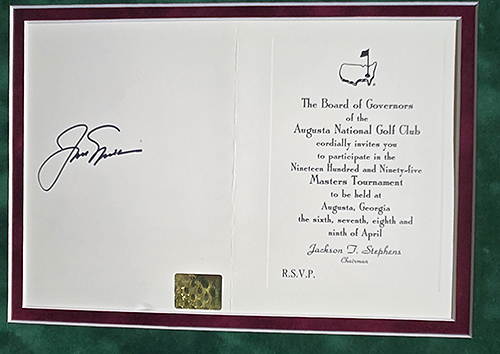 The Board of Governors
of the
Augusta National Golf Club
cordially invites you
to participate in the
Nineteen Hundred and Ninety-five
Masters Tournament
to be held at
Augusta, Georgia
the sixth, seventh, eighth and
ninth of April
Jackson T. Stephens
Chairman
R.S.V.P.